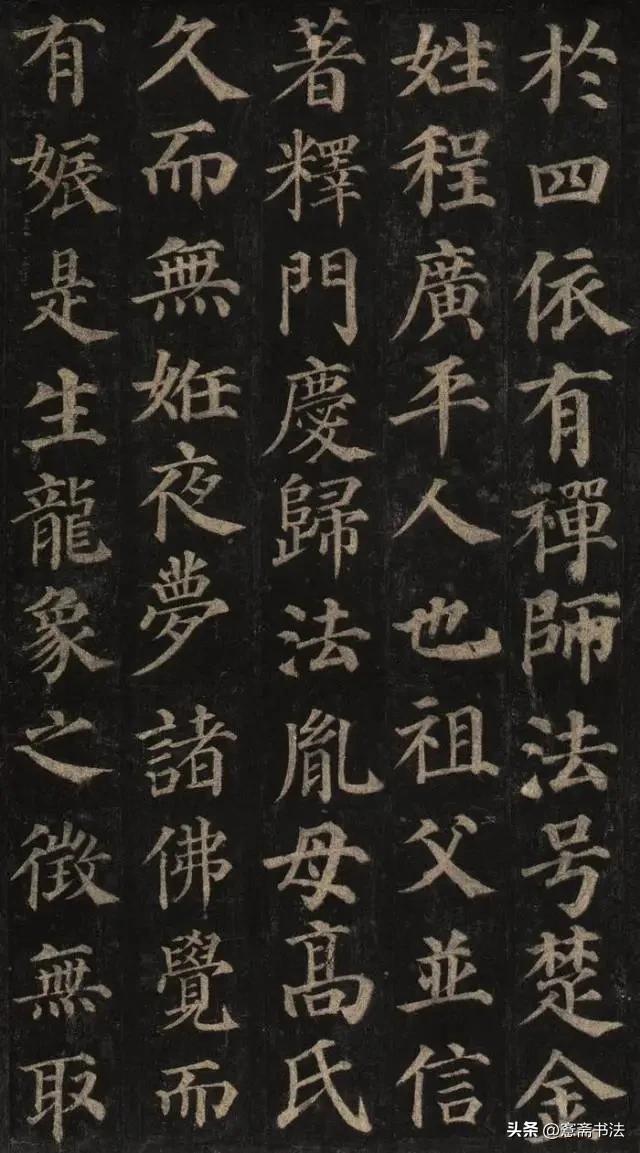 於四依有禪師法号楚金
姓程廣平人也祖父並信
著釋門慶歸法胤母高氏
久而無姙夜夢諸佛覺而
有娠是生龍象之徵無取
头条 @蹇斋书法